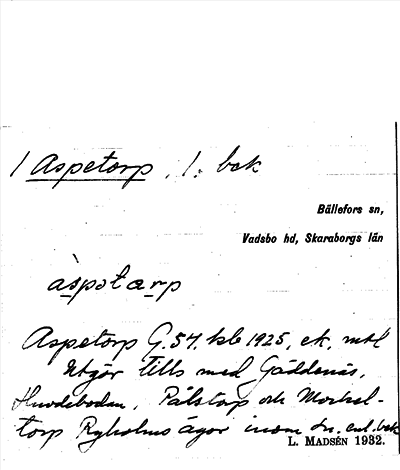 1 Aspetorp, 1. bek
Bällefors sn,
Vadsbo hd, Skaraborgs län
àspətarp
Aspetorp G. 54. kb 1925, ek. mtl
Utgör tills med Gäddenäs,
Pålstorp och Morkel-
torp Ryholms ägor inom sn. enl. bek
L. MADSÉN 1932.